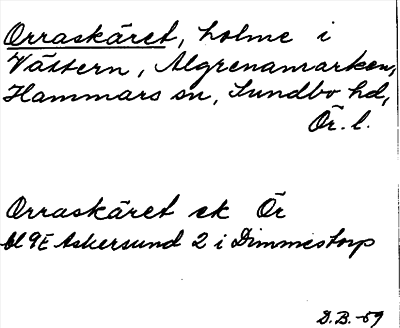 Orraskäret, holme i
Vättern, Algrenamarken,
Hammars sn, Sundbo hd,
Ör. l.
Orraskäret ek Ör
bl 9E Askersund 2 i Dimmestorp
D.B. -59